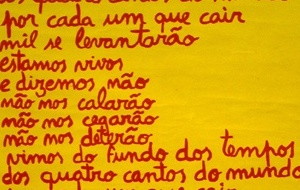 os quatro cantos do mundo
por cada um que cair
mil se levantarão
estamos vivos
e dizemos não
não nos calarão
não nos cegarão
não nos deterão
vimos do fundo dos tempos
dos quatro cantos do mundo